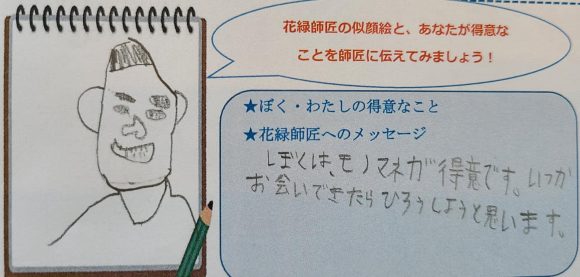 花緑師匠の似顔絵と、あなたが得意な
ことを師匠に伝えてみましょう！
★ぼく・わたしの得意なこと
★花緑師匠へのメッセージ
ぼくは、モノマネガ得意です。いつか
お会いできたらひろうしようと思います。